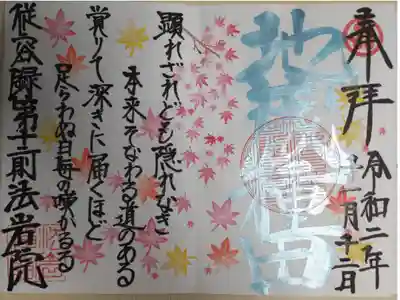 奉拝
令和二年
十一月十二日
地蔵種田
顕れざれども隠れなき
本来そなわる道のある
覚りて深きに届くほど
足らわぬ日毎の
従容録第十二則 法岩院